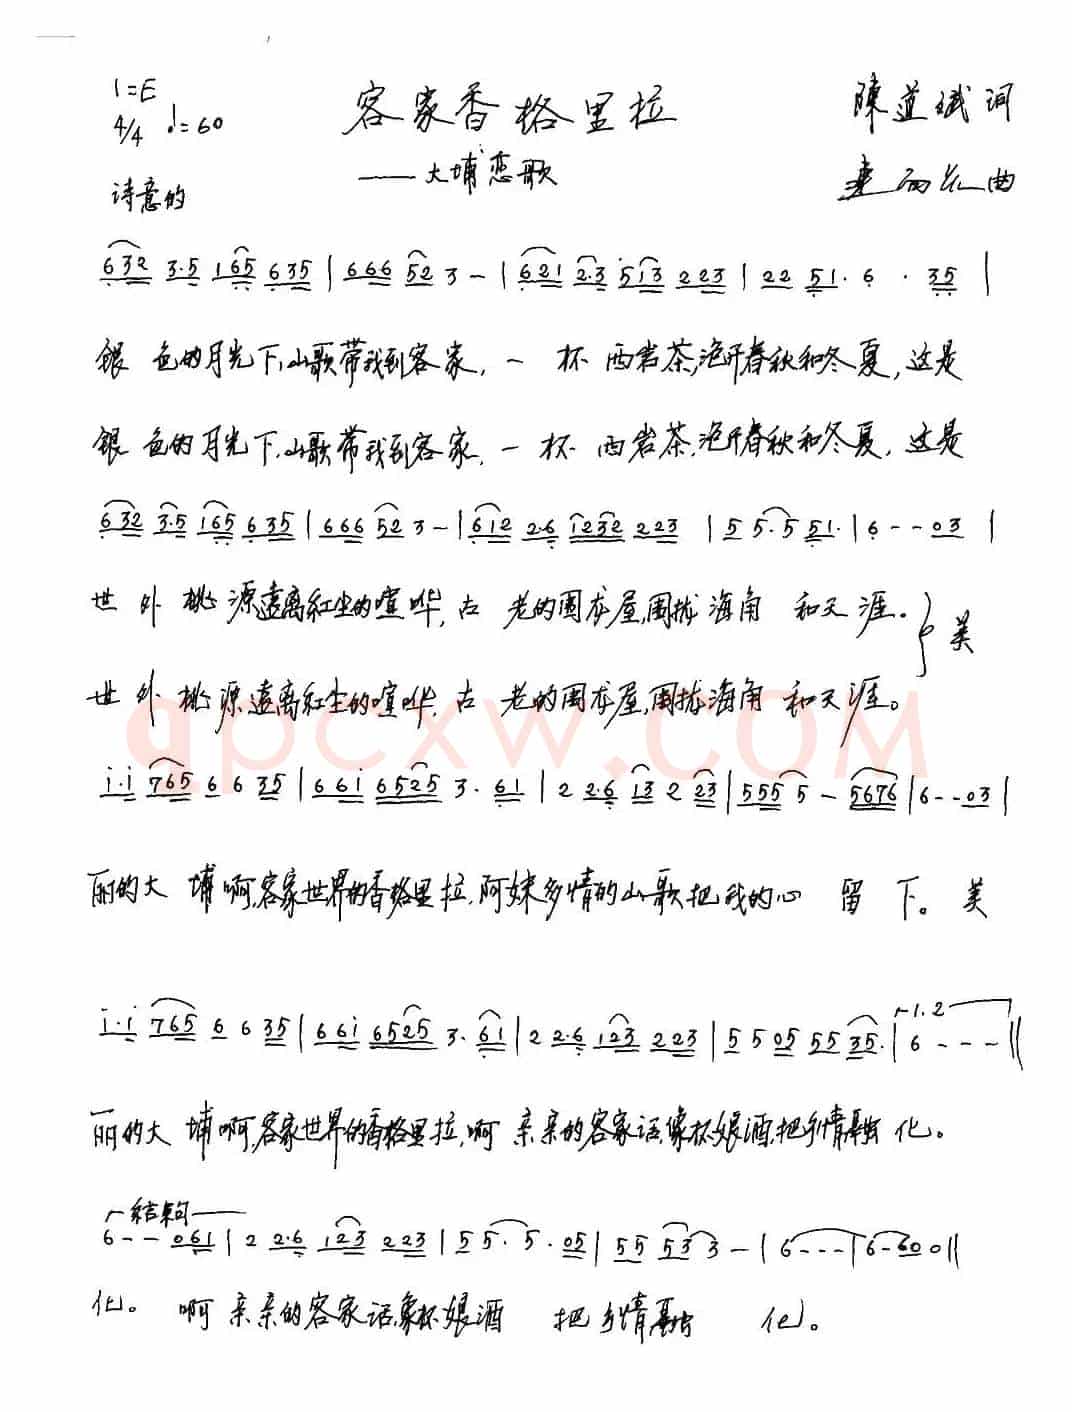 1=E
4/4 ♩=60
客家香格里拉
——大埔恋歌
陳道斌词
曲
诗意的
632 3·5 165 635 | 666 52 3 - | 621 2·3 513 223 | 22 51· 6 · 35 |
银色的月光下,山歌带我到客家,一杯西岩茶,泡开春秋和冬夏,这是
银色的月光下,山歌带我到客家,一杯西岩茶,泡开春秋和冬夏,这是
632 3·5 165 635 | 666 52 3 - | 612 2·6 1232 223 | 5 5·5 51· | 6 - - 03 |
世外桃源遠离紅尘的喧哗,古老的围龙屋,围拢海角和天涯。} 美
世外桃源遠离紅尘的喧哗,古老的围龙屋,围拢海角和天涯。
qpcxw.COM
i·i 765 6 6 35 | 66i 6525 3· 61 | 2 2·6 13 2 23 | 555 5 - 5676 | 6 - - 03 |
丽的大埔啊,客家世界的香格里拉,阿妹多情的山歌把我的心留下。美
i·i 765 6 6 35 | 66i 6525 3· 61 | 2 2·6 123 223 | 5 5 05 55 35· | 1.2 6 - - - ||
丽的大埔啊,客家世界的香格里拉,啊亲亲的客家话,像杯娘酒,把乡情融化。
结束句
6 - - 061 | 2 2·6 123 223 | 5 5· 5· 05 | 55 53 3 - | 6 - - - | 6 - 60 0 ||
化。啊亲亲的客家话,象杯娘酒 把乡情融 化。